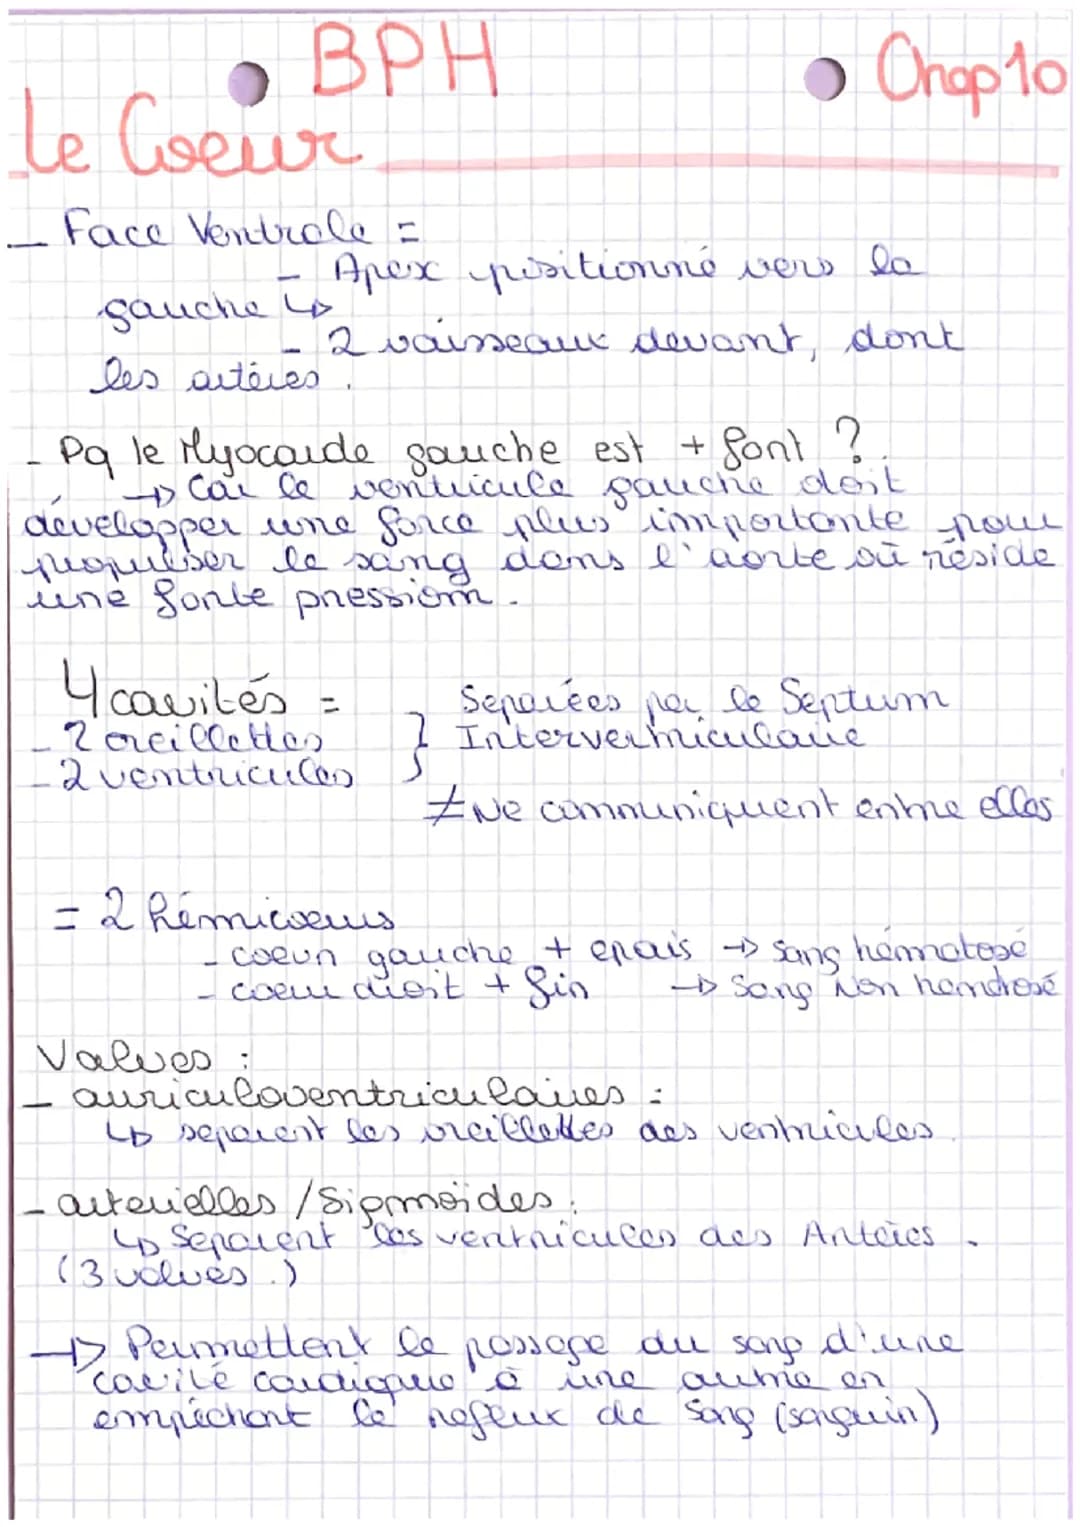 BPH
Chap 10
Le Coeur
- Face Ventrale =
- Apex positionné vers la
gauche ↳
- 2 vaisseaux devant, dont
les artères.
- Pq le Myocarde gauche est + fort ?
→ Car le ventricule gauche doit
développer une force plus importante pour
propulser le sang dans l'aorte où réside
une forte pression.
4 cavités =
- 2 oreillettes
- 2 ventricules
} Separées par le Septum
Interventriculaire
≠ Ne communiquent entre elles
= 2 hémicoeurs
- coeur gauche + epais → sang hématosé
- coeur droit + fin → Sang Non hématosé
Valves :
- auriculoventriculaires :
↳ separent les oreillettes des ventricules.
- arterielles / Sigmoïdes :
↳ Separent les ventricules des Artères.
(3 valves.)
→ Permettent le passage du sang d'une
cavité cardiaque à une autre en
empêchant le reflux de sang (sanguin)